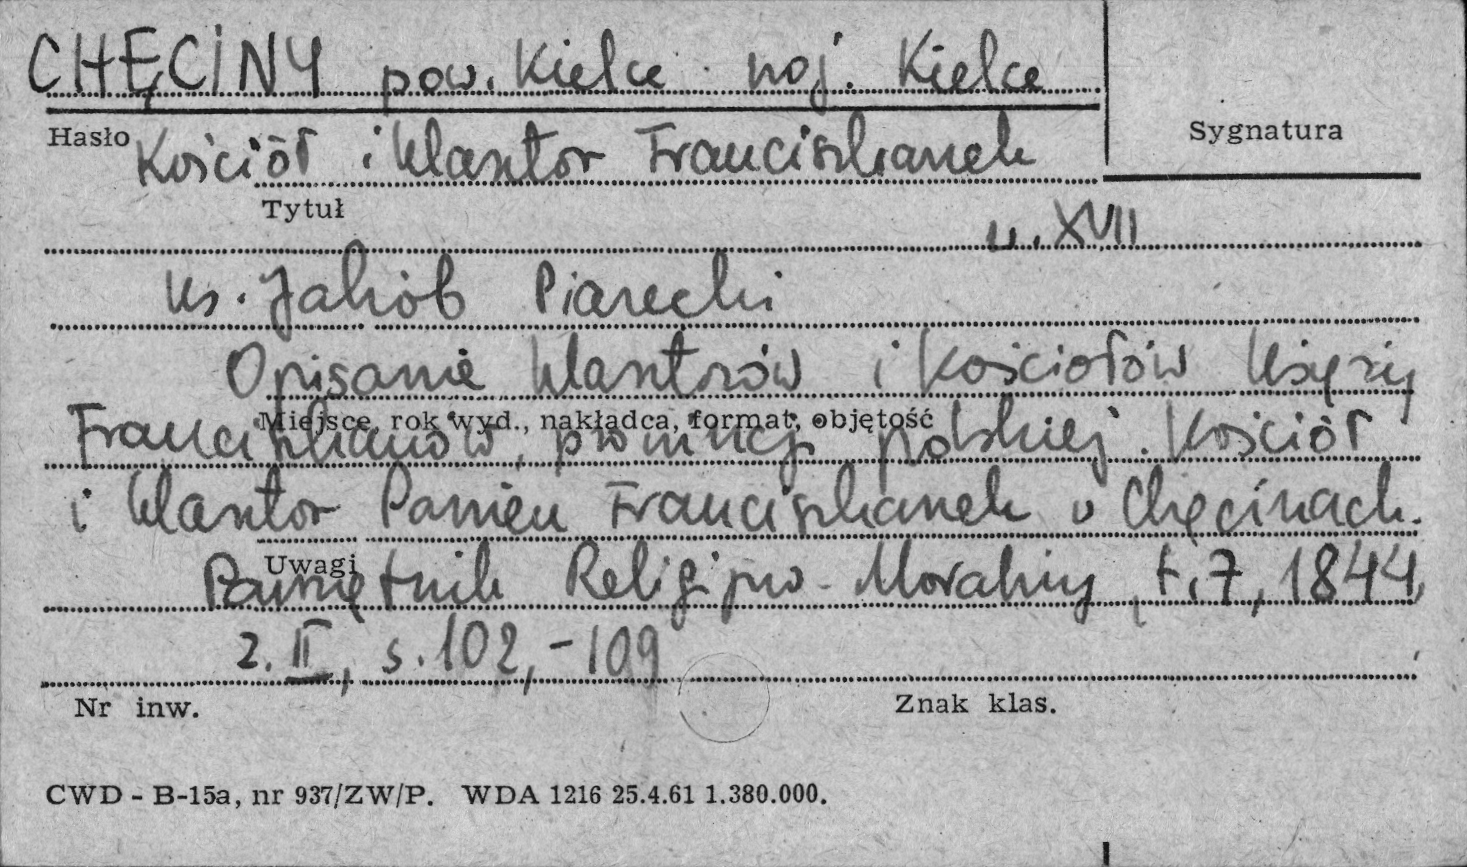 CHĘCINY pow. Kielce woj. Kielce
Hasło
Kościół i klasztor Franciszkanek
Sygnatura
Tytuł
w. XVII
ks. Jakób Piasecki
Opisanie klasztorów i kościołów księży
Miejsce, rok wyd., nakładca, format, objętość
Franciszkanów, prowincji polskiej. Kościół
i klasztor Panien Franciszkanek w Chęcinach.
Uwagi
Pamiętnik Religijno-Moralny, t. 7, 1844,
z. II, s. 102,-109
Nr inw.
Znak klas.
CWD - B-15a, nr 937/ZW/P. WDA 1216 25.4.61 1.380.000.